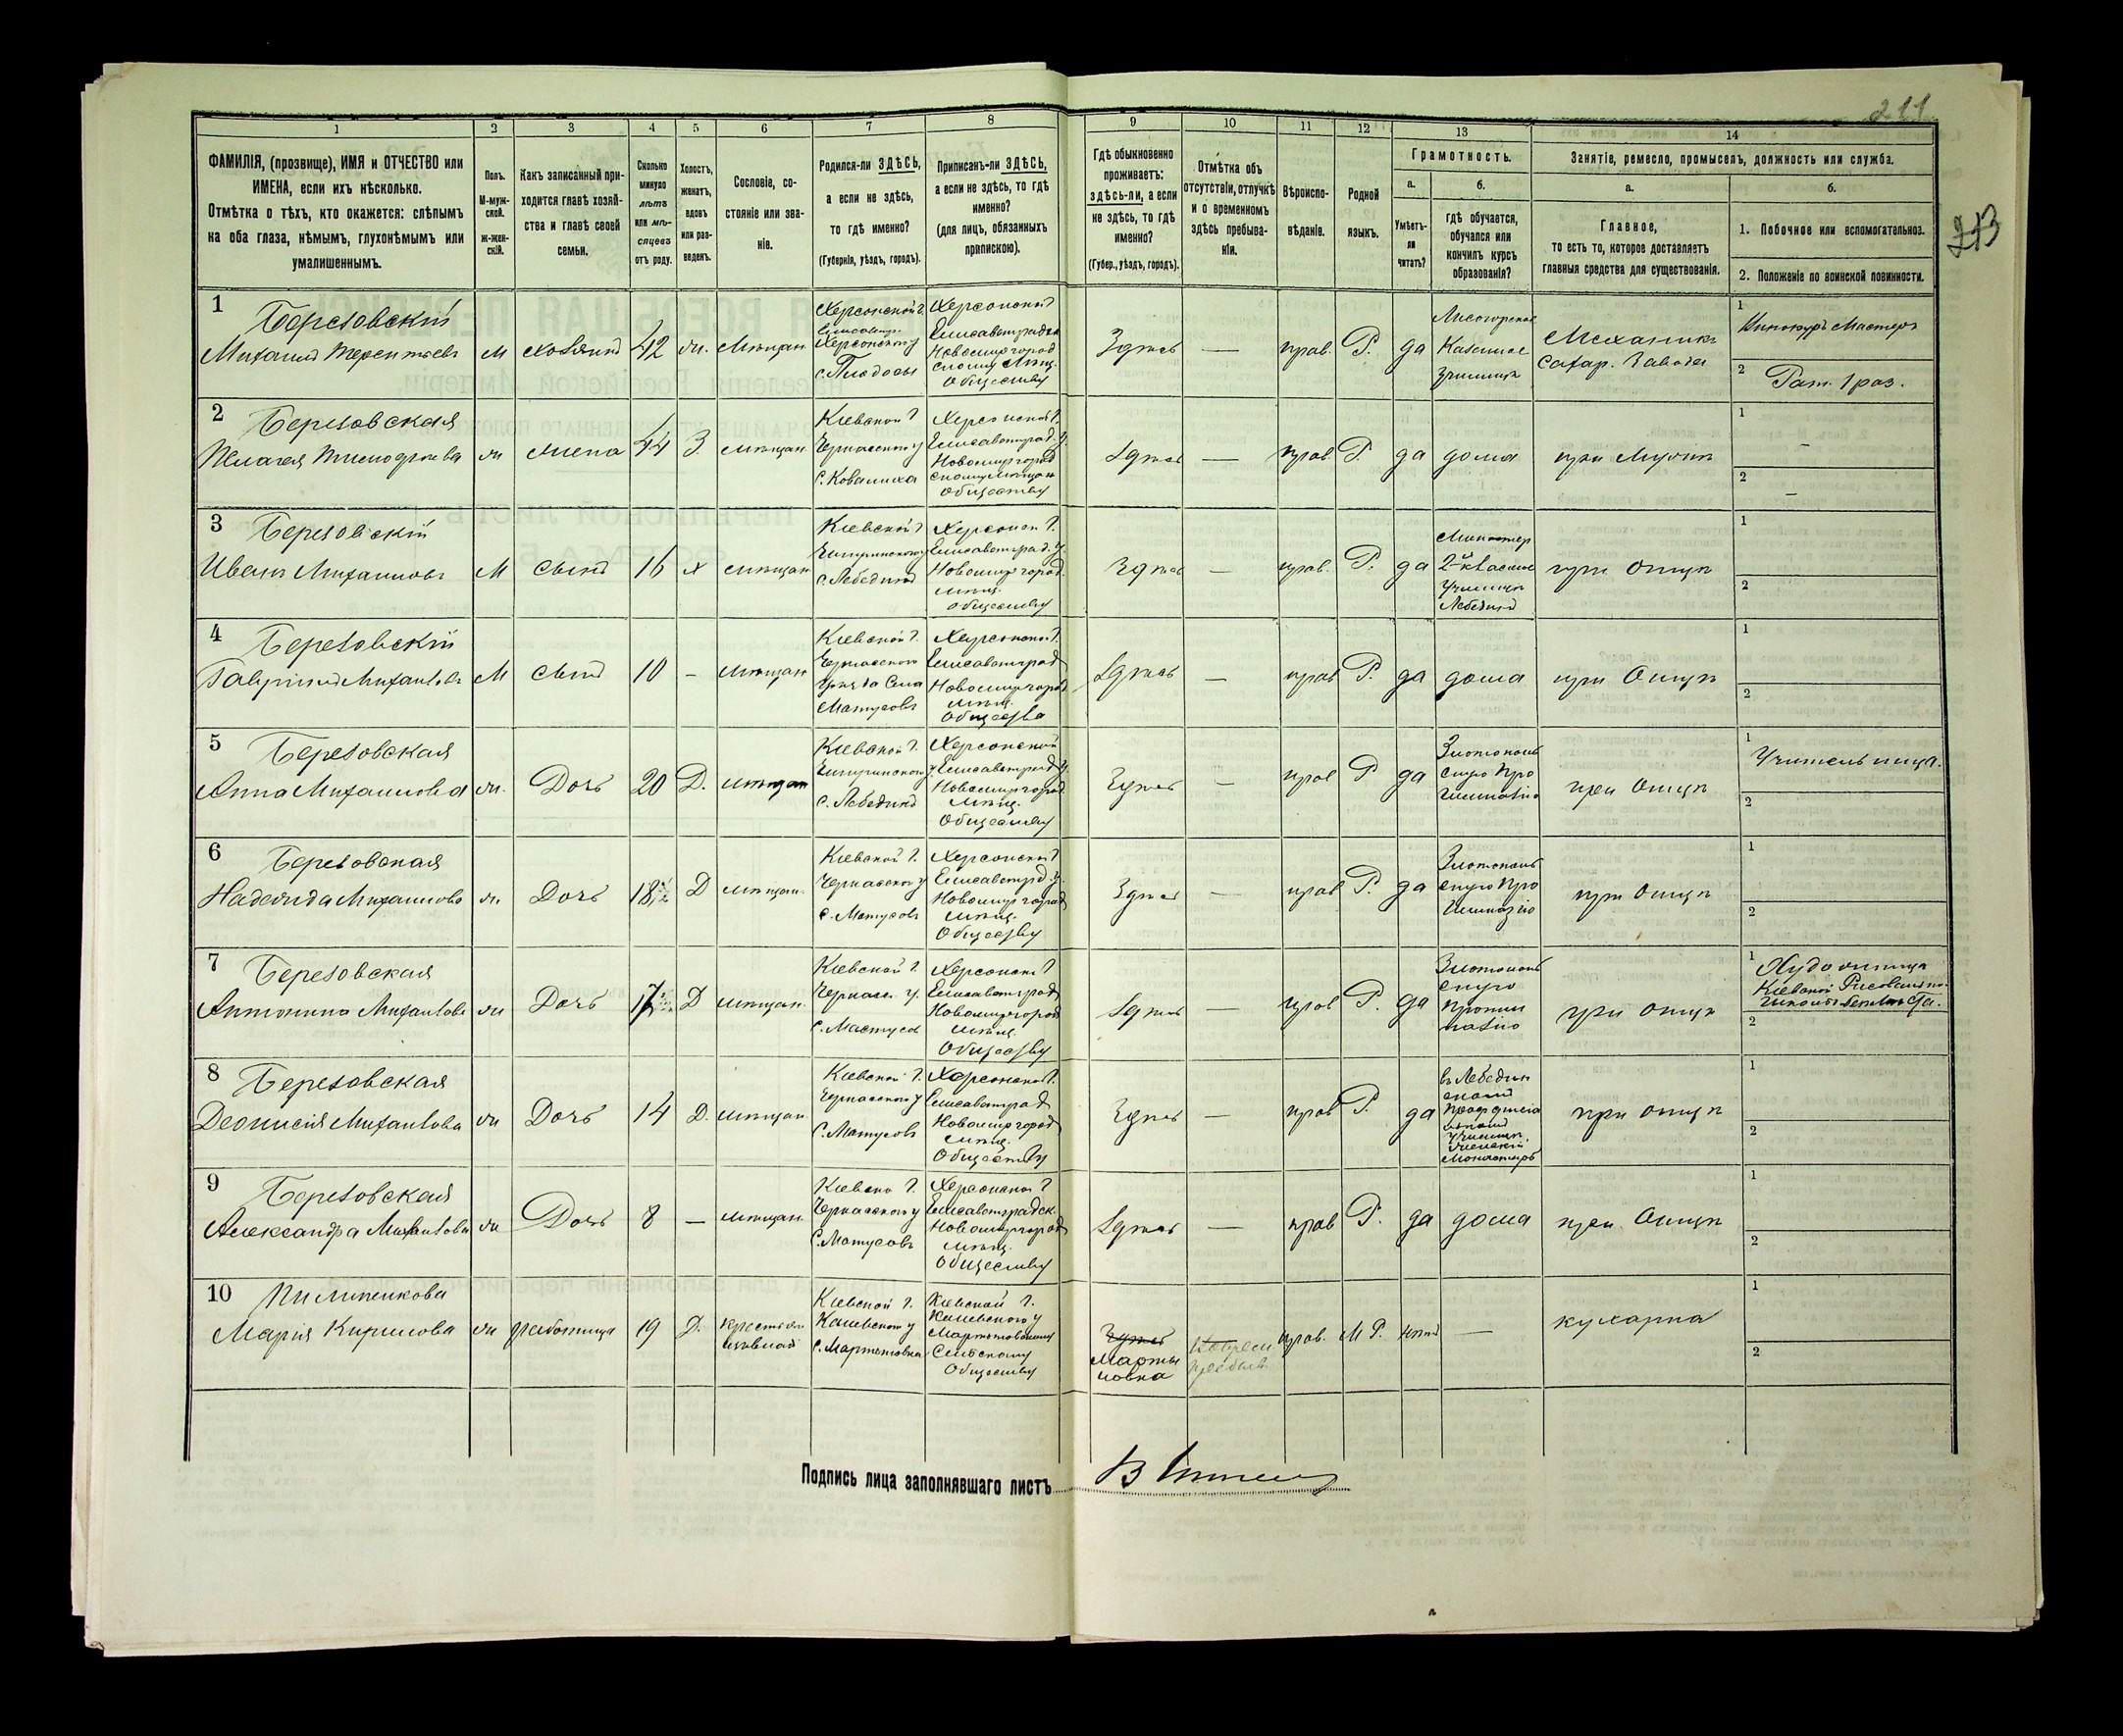 211
213
1 2 3 4 5 6 7 8 9 10 11 12 13 14
ФАМИЛІЯ, (прозвище), ИМЯ и ОТЧЕСТВО или
ИМЕНА, если ихъ нѣсколько.
Отмѣтка о тѣхъ, кто окажется: слѣпымъ
на оба глаза, нѣмымъ, глухонѣмымъ или
умалишеннымъ.
Полъ.
М-муж-
ской.
ж-жен-
скій.
Какъ записанный при-
ходится главѣ хозяй-
ства и главѣ своей
семьи.
Сколько
минуло
лѣтъ
или мѣ-
сяцевъ
отъ роду.
Холостъ,
женатъ,
вдовъ
или раз-
веденъ.
Сословіе, со-
стояніе или зва-
ніе.
Родился-ли ЗДѢСЬ,
а если не здѣсь,
то гдѣ именно?
(Губернія, уѣздъ, городъ).
Приписанъ-ли ЗДѢСЬ,
а если не здѣсь, то гдѣ
именно?
(для лицъ, обязанныхъ
припискою).
Гдѣ обыкновенно
проживаетъ:
здѣсь-ли, а если
не здѣсь, то гдѣ
именно?
(Губер., уѣздъ, городъ).
Отмѣтка объ
отсутствіи, отлучкѣ
и о временномъ
здѣсь пребыва-
ніи.
Вѣроиспо-
вѣданіе.
Родной
языкъ.
Грамотность.
а.
Умѣетъ-
ли
читать?
б.
гдѣ обучается,
обучался или
кончилъ курсъ
образованія?
Занятіе, ремесло, промыселъ, должность или служба.
а.
Главное,
то есть то, которое доставляетъ
главныя средства для существованія.
б.
1. Побочное или вспомогательное.
2. Положеніе по воинской повинности.
1
Березовскій
Михаилъ Терентьевъ
М
хозяинъ
42
ж.
Мѣщан.
Херсонской г.
с.
Херсонской
Елисаветградск
Новомиргород
Мѣщ.
Обществу
Здѣсь
—
прав.
Р.
да
Казенное
Механикъ
Сахар. Завода
1
Мастеръ
2
Рат. 1 раз.
2
Березовская
ж
жена
44
З.
мѣщан
Кіевской г.
Черкасского у
Херсонской г.
Елисаветград. у.
Новомиргород
Обществу
Здѣсь
—
прав.
Р.
да
дома
при Мужѣ
1
—
2
—
3
Березовскій
Иванъ Михаиловъ
М
Сынъ
16
х
мѣщан
Кіевской г
Чигиринского у
с. Лебединъ
Херсонск г.
Елисаветград. у.
Новомиргород.
мѣщ.
обществу
Здѣсь
—
прав.
Р.
да
2-й классн
Училищѣ
Лебединъ
при Отцѣ
1
2
4
Березовскій
Гавріилъ Михаиловъ
М
Сынъ
10
–
мѣщан
Кіевской г.
Черкасского
Матусовъ
Херсонской г.
Елисаветград
Новомиргород
мѣщ.
Общества
Здѣсь
—
прав
Р.
да
дома
при Отцѣ
1
2
5
Березовская
Анна Михаилова
ж.
Дочь
20
Д.
мѣщан
Кіевской г.
Чигиринского у.
с. Лебединъ
Херсонской
Елисаветград. у.
Новомиргород
мѣщ.
Обществу
Здѣсь
—
прав
Р
да
Златополь
скую Про
гимназію
при Отцѣ
1
Учительница.
2
6
Березовская
Надежда Михаилова
ж.
Дочь
18
Д
мѣщан.
Кіевской г.
Черкасского у
с. Матусовъ
Херсонской г
Елисаветград. у.
Новомиргород
мѣщ.
Обществу
Здѣсь
—
прав
Р.
да
Златополь
скую Про
гимназію
при Отцѣ
1
2
7
Березовская
Антонина Михаилова
ж
Дочь
17
Д
мѣщан.
Кіевской г.
Черкасс. у.
с. Мастусов
Херсонск г
Елисаветград
Новомиргород
мѣщ.
Обществу
Здѣсь
—
прав
Р.
да
Златополь
скую
Прогим
назію
при Отцѣ
1
Художница
Кіевской Рисовально
2
8
Березовская
Деонисія Михаилова
ж
Дочь
14
Д.
мѣщан.
Кіевской г.
Черкасского у
с. Матусовъ
Херсонской г.
Елисаветград
Новомиргород
мѣщ.
Обществу
Здѣсь
—
прав
Р.
да
въ Лебедин
скомъ
Училищѣ.
Женскій
Монастырь
при отцѣ
1
2
9
Березовская
Александра Михаилова
ж
Дочь
8
—
мѣщан.
Кіевско г.
Черкасского у
с. Матусовъ
Херсонской г
Елисаветградск.
Новомиргород
мѣщ.
Обществу
Здѣсь
—
прав
Р.
да
дома
при Отцѣ
1
2
10
Пилипенкова
Марія Кирилова
ж
работница
19
Д.
Кіевской г.
Каневского у
с. Мартыновка
Кіевской г.
Каневского у
Мартыновскому
Сельскому
Обществу
Здѣсь
Марты
новка
прав.
М Р.
нѣтъ
—
кухарка
1
2
Подпись лица заполнявшаго листъ